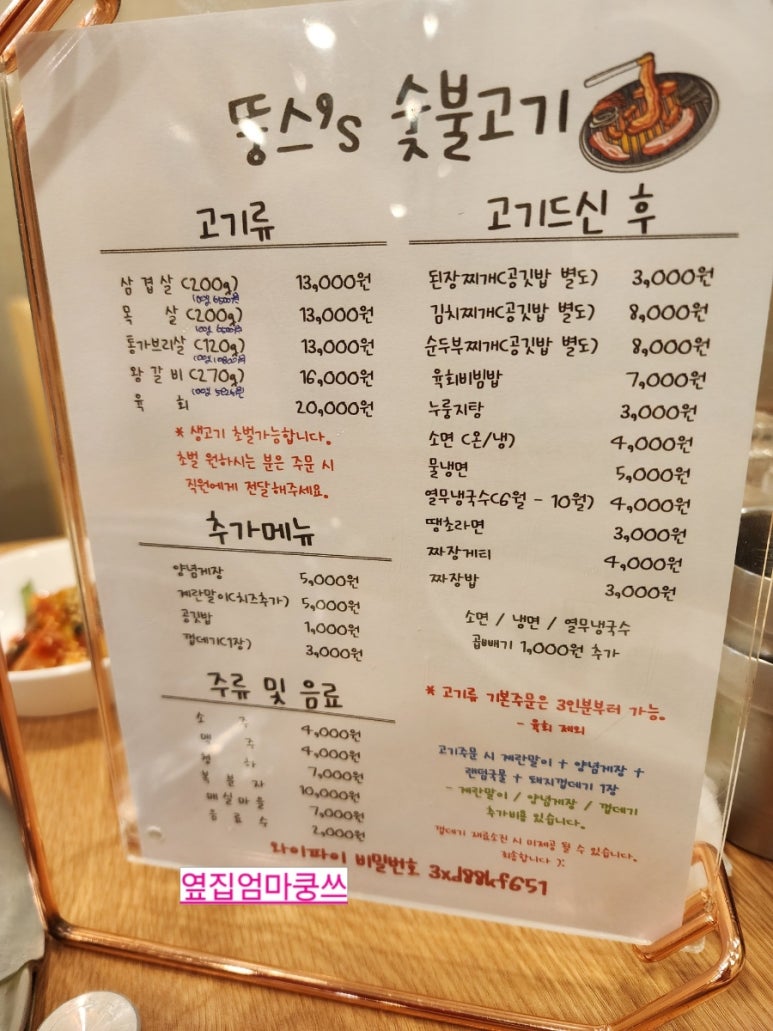 뚱스's 숯불고기
고기류
삼겹살 (200g) 13,000원
100g 6500원
목 살 (200g) 13,000원
100g 6500원
통가브리살 (120g) 13,000원
왕갈비 (270g) 16,000원
육 회 20,000원
* 생고기 초벌가능합니다.
초벌 원하시는 분은 주문 시
직원에게 전달해주세요.
추가메뉴
양념게장 5,000원
계란말이(치즈추가) 5,000원
공깃밥 1,000원
껍데기(1장) 3,000원
주류 및 음료
소 주 4,000원
맥 주 4,000원
청 하 7,000원
복 분 자 10,000원
매실마을 7,000원
음 료 수 2,000원
고기드신 후
된장찌개(공깃밥 별도) 3,000원
김치찌개(공깃밥 별도) 8,000원
순두부찌개(공깃밥 별도) 8,000원
육회비빔밥 7,000원
누룽지탕 3,000원
소면 (온/냉) 4,000원
물냉면 5,000원
열무냉국수(6월 - 10월) 4,000원
땡초라면 3,000원
짜장게티 4,000원
짜장밥 3,000원
소면 / 냉면 / 열무냉국수
곱빼기 1,000원 추가
* 고기류 기본주문은 3인분부터 가능.
- 육회 제외
고기주문 시 계란말이 + 양념게장 +
랜덤국물 + 돼지껍데기 1장
- 계란말이 / 양념게장 / 껍데기
추가비용 있습니다.
껍데기 재료소진 시 미제공 될 수 있습니다.
죄송합니다 :(
와이파이 비밀번호 3xd88kf651
옆집엄마쿵쓰